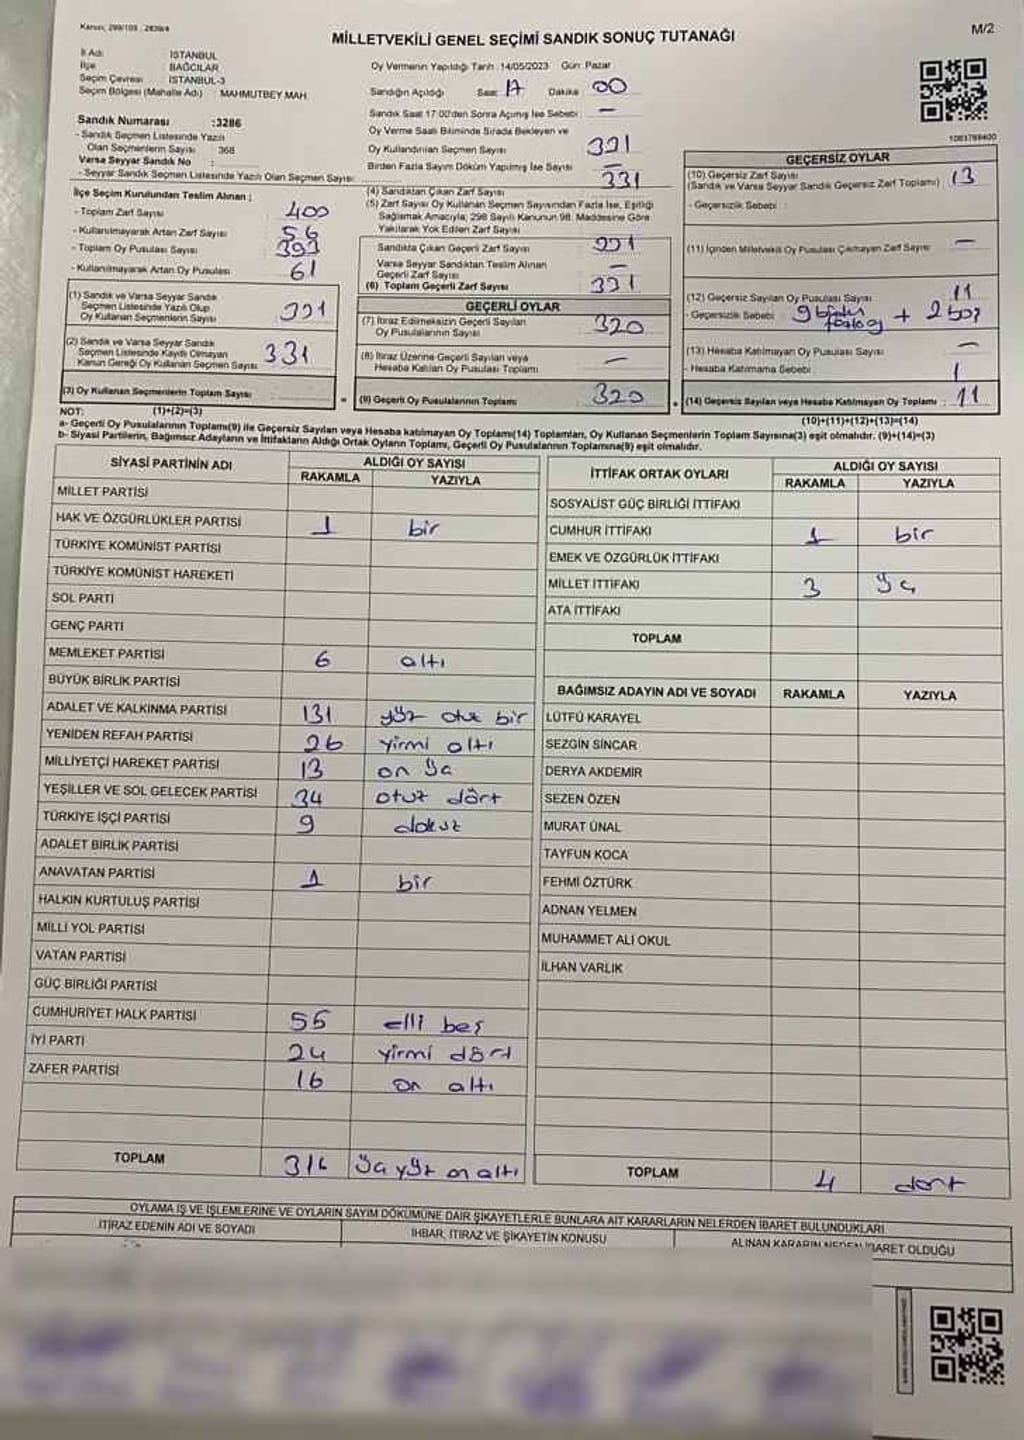 Kanun: 298/105 ; 2839/4
M/2
MİLLETVEKİLİ GENEL SEÇİMİ SANDIK SONUÇ TUTANAĞI
İl Adı : İSTANBUL
İlçe : BAĞCILAR
Seçim Çevresi : İSTANBUL-3
Seçim Bölgesi (Mahalle Adı) : MAHMUTBEY MAH.
Sandık Numarası :3286
- Sandık Seçmen Listesinde Yazılı
Olan Seçmenlerin Sayısı : 368
Varsa Seyyar Sandık No :
- Seyyar Sandık Seçmen Listesinde Yazılı Olan Seçmen Sayısı:
İlçe Seçim Kurulundan Teslim Alınan :
- Toplam Zarf Sayısı : 400
- Kullanılmayarak Artan Zarf Sayısı : 56
- Toplam Oy Pusulası Sayısı : 393
- Kullanılmayarak Artan Oy Pusulası : 61
(1) Sandık ve Varsa Seyyar Sandık
Seçmen Listesinde Yazılı Olup
Oy Kullanan Seçmenlerin Sayısı : 331
(2) Sandık ve Varsa Seyyar Sandık
Seçmen Listesinde Kayıtlı Olmayan
Kanun Gereği Oy Kullanan Seçmen Sayısı : 331
(3) Oy Kullanan Seçmenlerin Toplam Sayısı :
Oy Vermenin Yapıldığı Tarih :14/05/2023 Gün: Pazar
Sandığın Açıldığı Saat : 17 Dakika : 00
Sandık Saat 17:00'den Sonra Açılmış İse Sebebi : —
Oy Verme Saati Bitiminde Sırada Bekleyen ve
Oy Kullandırılan Seçmen Sayısı : 331
Birden Fazla Sayım Döküm Yapılmış İse Sayısı : —
(4) Sandıktan Çıkan Zarf Sayısı : 331
(5) Zarf Sayısı Oy Kullanan Seçmen Sayısından Fazla İse, Eşitliği
Sağlamak Amacıyla; 298 Sayılı Kanunun 98. Maddesine Göre
Yakılarak Yok Edilen Zarf Sayısı :
Sandıkta Çıkan Geçerli Zarf Sayısı : 331
Varsa Seyyar Sandıktan Teslim Alınan
Geçerli Zarf Sayısı : —
(6) Toplam Geçerli Zarf Sayısı : 331
GEÇERLİ OYLAR
(7) İtiraz Edilmeksizin Geçerli Sayılan
Oy Pusulalarının Sayısı : 320
(8) İtiraz Üzerine Geçerli Sayılan veya
Hesaba Katılan Oy Pusulası Toplamı : —
(9) Geçerli Oy Pusulalarının Toplamı : 320
1083788400
GEÇERSİZ OYLAR
(10) Geçersiz Zarf Sayısı
(Sandık ve Varsa Seyyar Sandık Geçersiz Zarf Toplamı) : 13
- Geçersizlik Sebebi :
(11) İçinden Milletvekili Oy Pusulası Çıkmayan Zarf Sayısı : —
(12) Geçersiz Sayılan Oy Pusulası Sayısı : 11
- Geçersizlik Sebebi : 9 birden fazla oy + 2 boş
(13) Hesaba Katılmayan Oy Pusulası Sayısı : —
- Hesaba Katılmama Sebebi :
(14) Geçersiz Sayılan veya Hesaba Katılmayan Oy Toplamı : 11
NOT: (1)+(2)=(3)
(10)+(11)+(12)+(13)=(14)
a- Geçerli Oy Pusulalarının Toplamı(9) ile Geçersiz Sayılan veya Hesaba katılmayan Oy Toplamı(14) Toplamları, Oy Kullanan Seçmenlerin Toplam Sayısına(3) eşit olmalıdır. (9)+(14)=(3)
b- Siyasi Partilerin, Bağımsız Adayların ve İttifakların Aldığı Ortak Oyların Toplamı, Geçerli Oy Pusulalarının Toplamına(9) eşit olmalıdır.
SİYASİ PARTİNİN ADI ALDIĞI OY SAYISI
RAKAMLA YAZIYLA
MİLLET PARTİSİ
HAK VE ÖZGÜRLÜKLER PARTİSİ 1 bir
TÜRKİYE KOMÜNİST PARTİSİ
TÜRKİYE KOMÜNİST HAREKETİ
SOL PARTİ
GENÇ PARTİ
MEMLEKET PARTİSİ 6 altı
BÜYÜK BİRLİK PARTİSİ
ADALET VE KALKINMA PARTİSİ 131 yüz otuz bir
YENİDEN REFAH PARTİSİ 26 yirmi altı
MİLLİYETÇİ HAREKET PARTİSİ 13 on üç
YEŞİLLER VE SOL GELECEK PARTİSİ 34 otuz dört
TÜRKİYE İŞÇİ PARTİSİ 9 dokuz
ADALET BİRLİK PARTİSİ
ANAVATAN PARTİSİ 1 bir
HALKIN KURTULUŞ PARTİSİ
MİLLİ YOL PARTİSİ
VATAN PARTİSİ
GÜÇ BİRLİĞİ PARTİSİ
CUMHURİYET HALK PARTİSİ 55 elli beş
İYİ PARTİ 24 yirmi dört
ZAFER PARTİSİ 16 on altı
TOPLAM 316 üç yüz on altı
İTTİFAK ORTAK OYLARI ALDIĞI OY SAYISI
RAKAMLA YAZIYLA
SOSYALİST GÜÇ BİRLİĞİ İTTİFAKI
CUMHUR İTTİFAKI 1 bir
EMEK VE ÖZGÜRLÜK İTTİFAKI
MİLLET İTTİFAKI 3 üç
ATA İTTİFAKI
TOPLAM
BAĞIMSIZ ADAYIN ADI VE SOYADI RAKAMLA YAZIYLA
LÜTFÜ KARAYEL
SEZGİN SİNCAR
DERYA AKDEMİR
SEZEN ÖZEN
MURAT ÜNAL
TAYFUN KOCA
FEHMİ ÖZTÜRK
ADNAN YELMEN
MUHAMMET ALİ OKUL
İLHAN VARLIK
TOPLAM 4 dört
OYLAMA İŞ VE İŞLEMLERİNE VE OYLARIN SAYIM DÖKÜMÜNE DAİR ŞİKAYETLERLE BUNLARA AİT KARARLARIN NELERDEN İBARET BULUNDUKLARI
İTİRAZ EDENİN ADI VE SOYADI
İHBAR, İTİRAZ VE ŞİKAYETİN KONUSU
ALINAN KARARIN NEDEN İBARET OLDUĞU